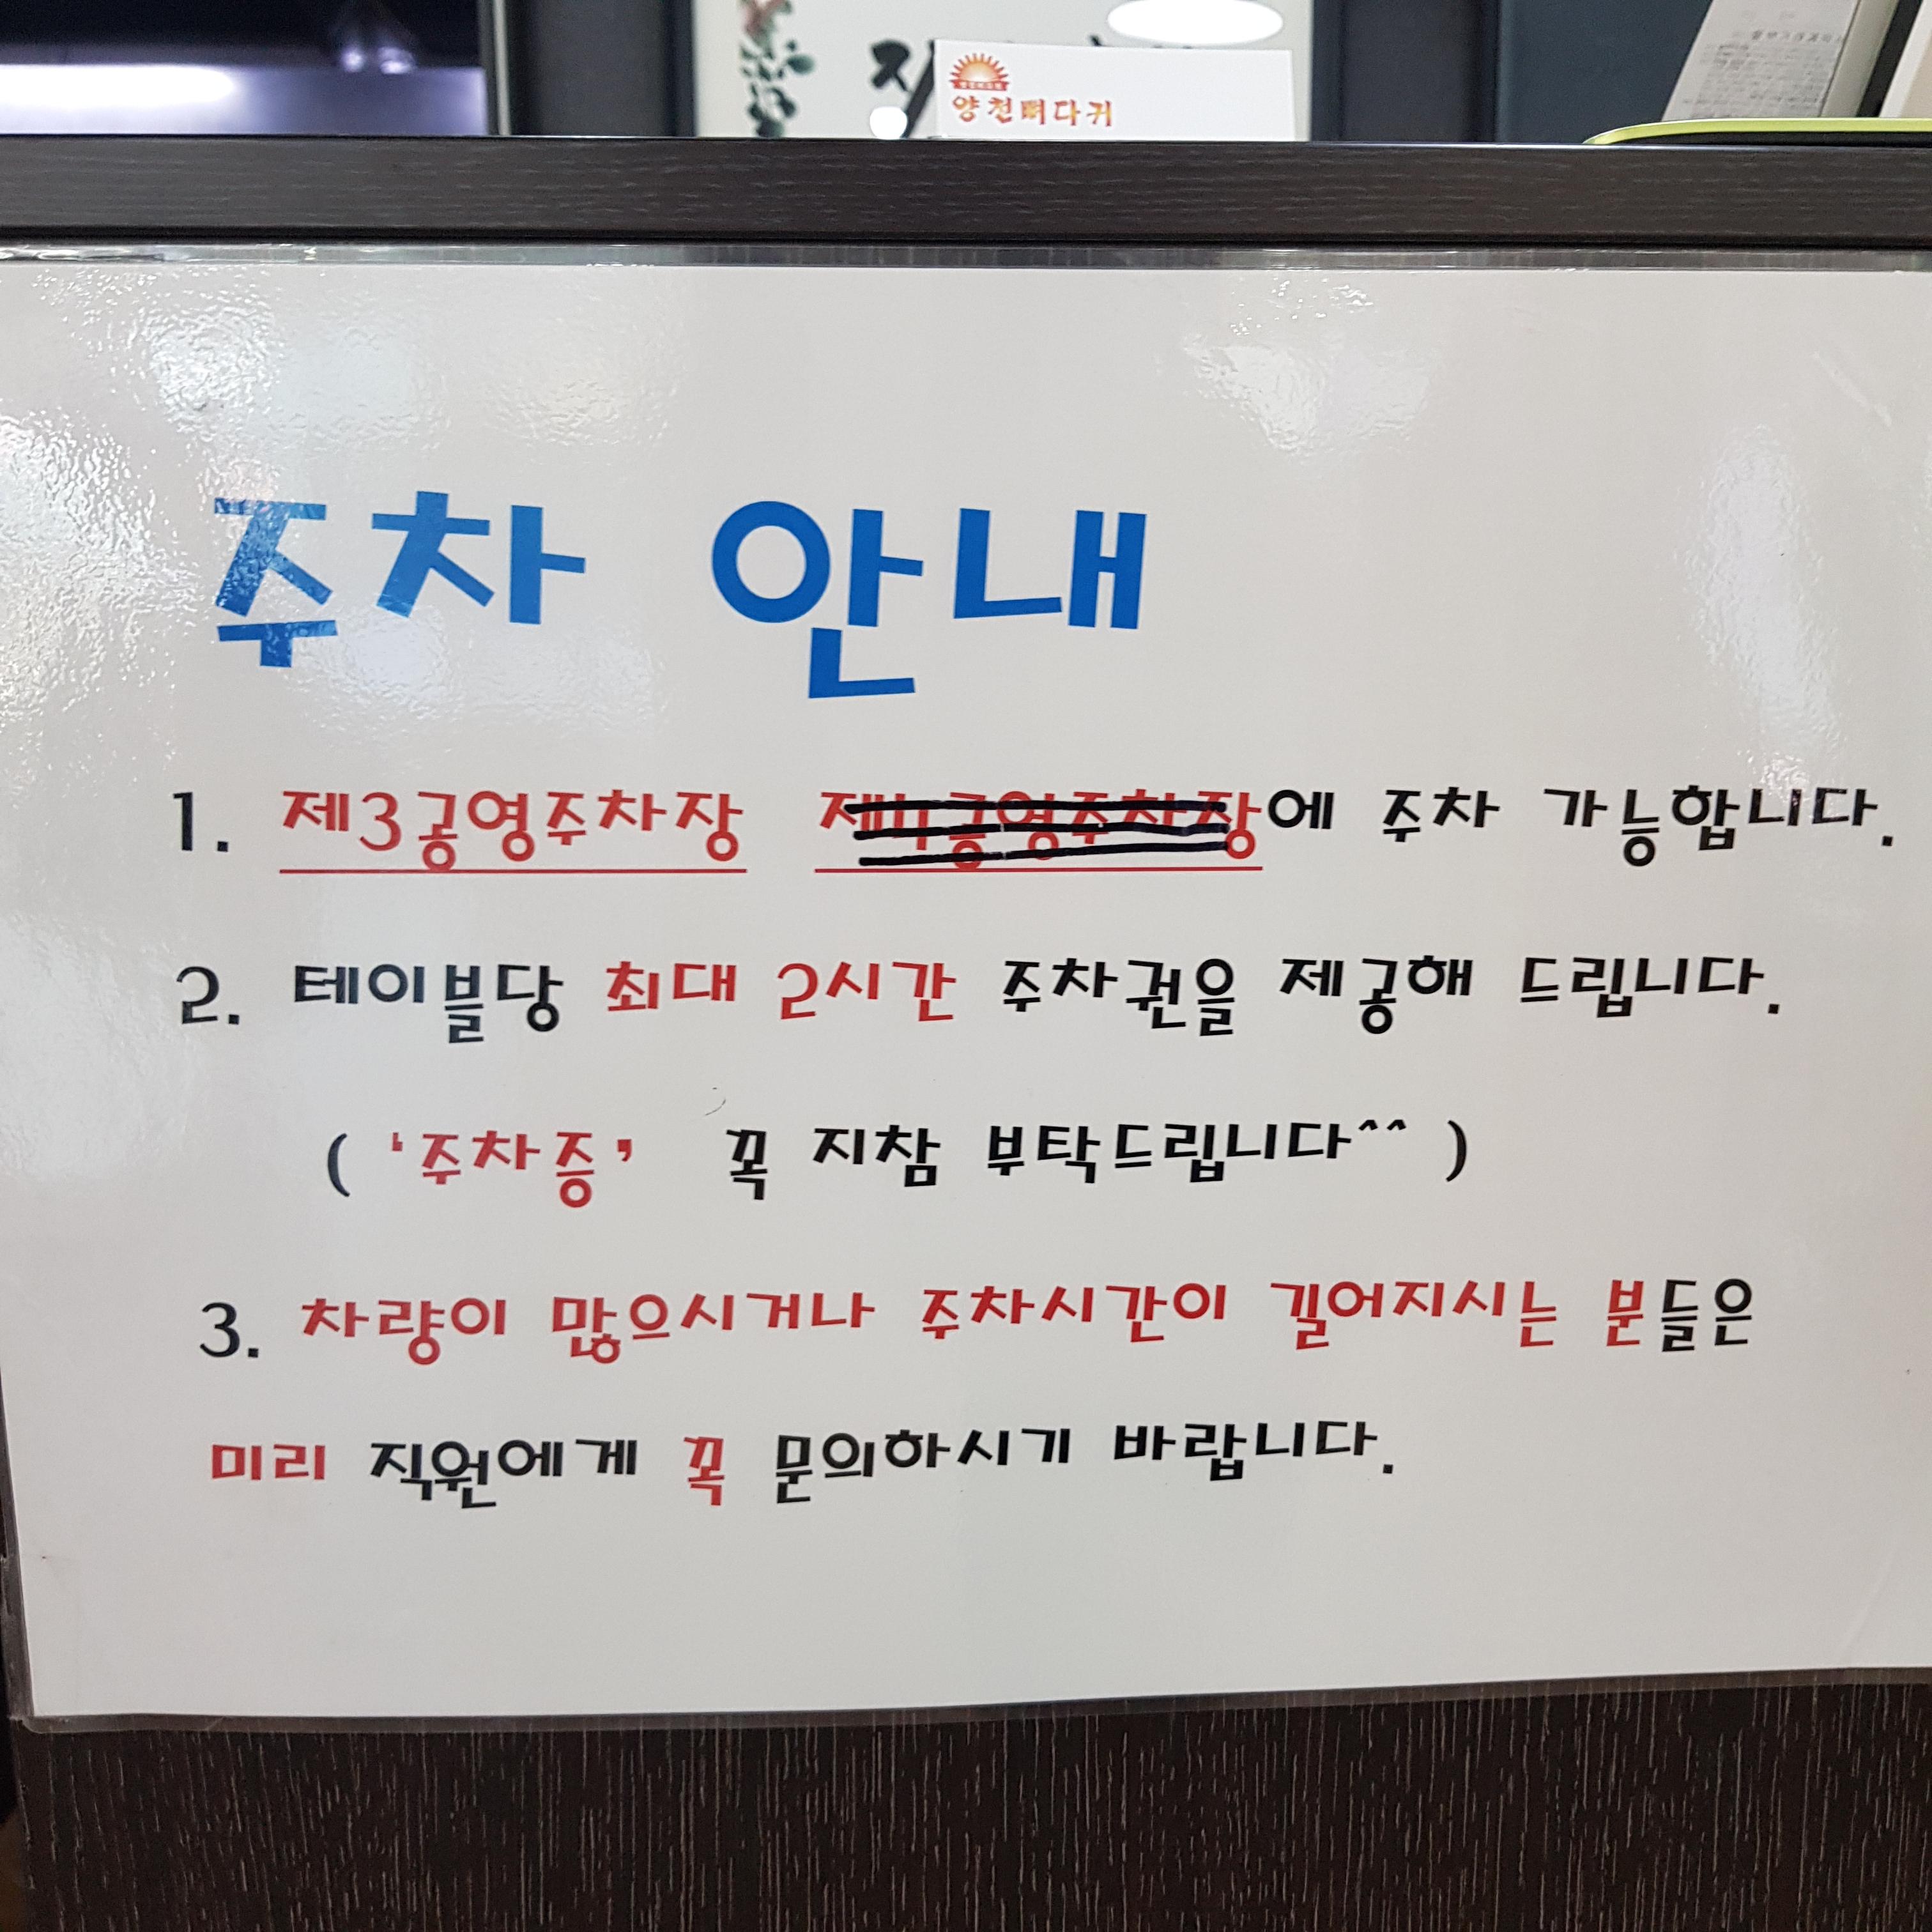 양천뼈다귀
주차 안내
1. 제3공영주차장 제4공영주차장에 주차 가능합니다.
2. 테이블당 최대 2시간 주차권을 제공해 드립니다.
( '주차증' 꼭 지참 부탁드립니다^^ )
3. 차량이 많으시거나 주차시간이 길어지시는 분들은
미리 직원에게 꼭 문의하시기 바랍니다.